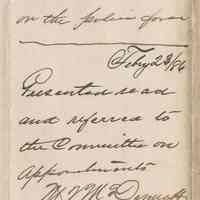 on the police force
Feby 23/86
Presented read
and referred to
the Committee on
Appointments